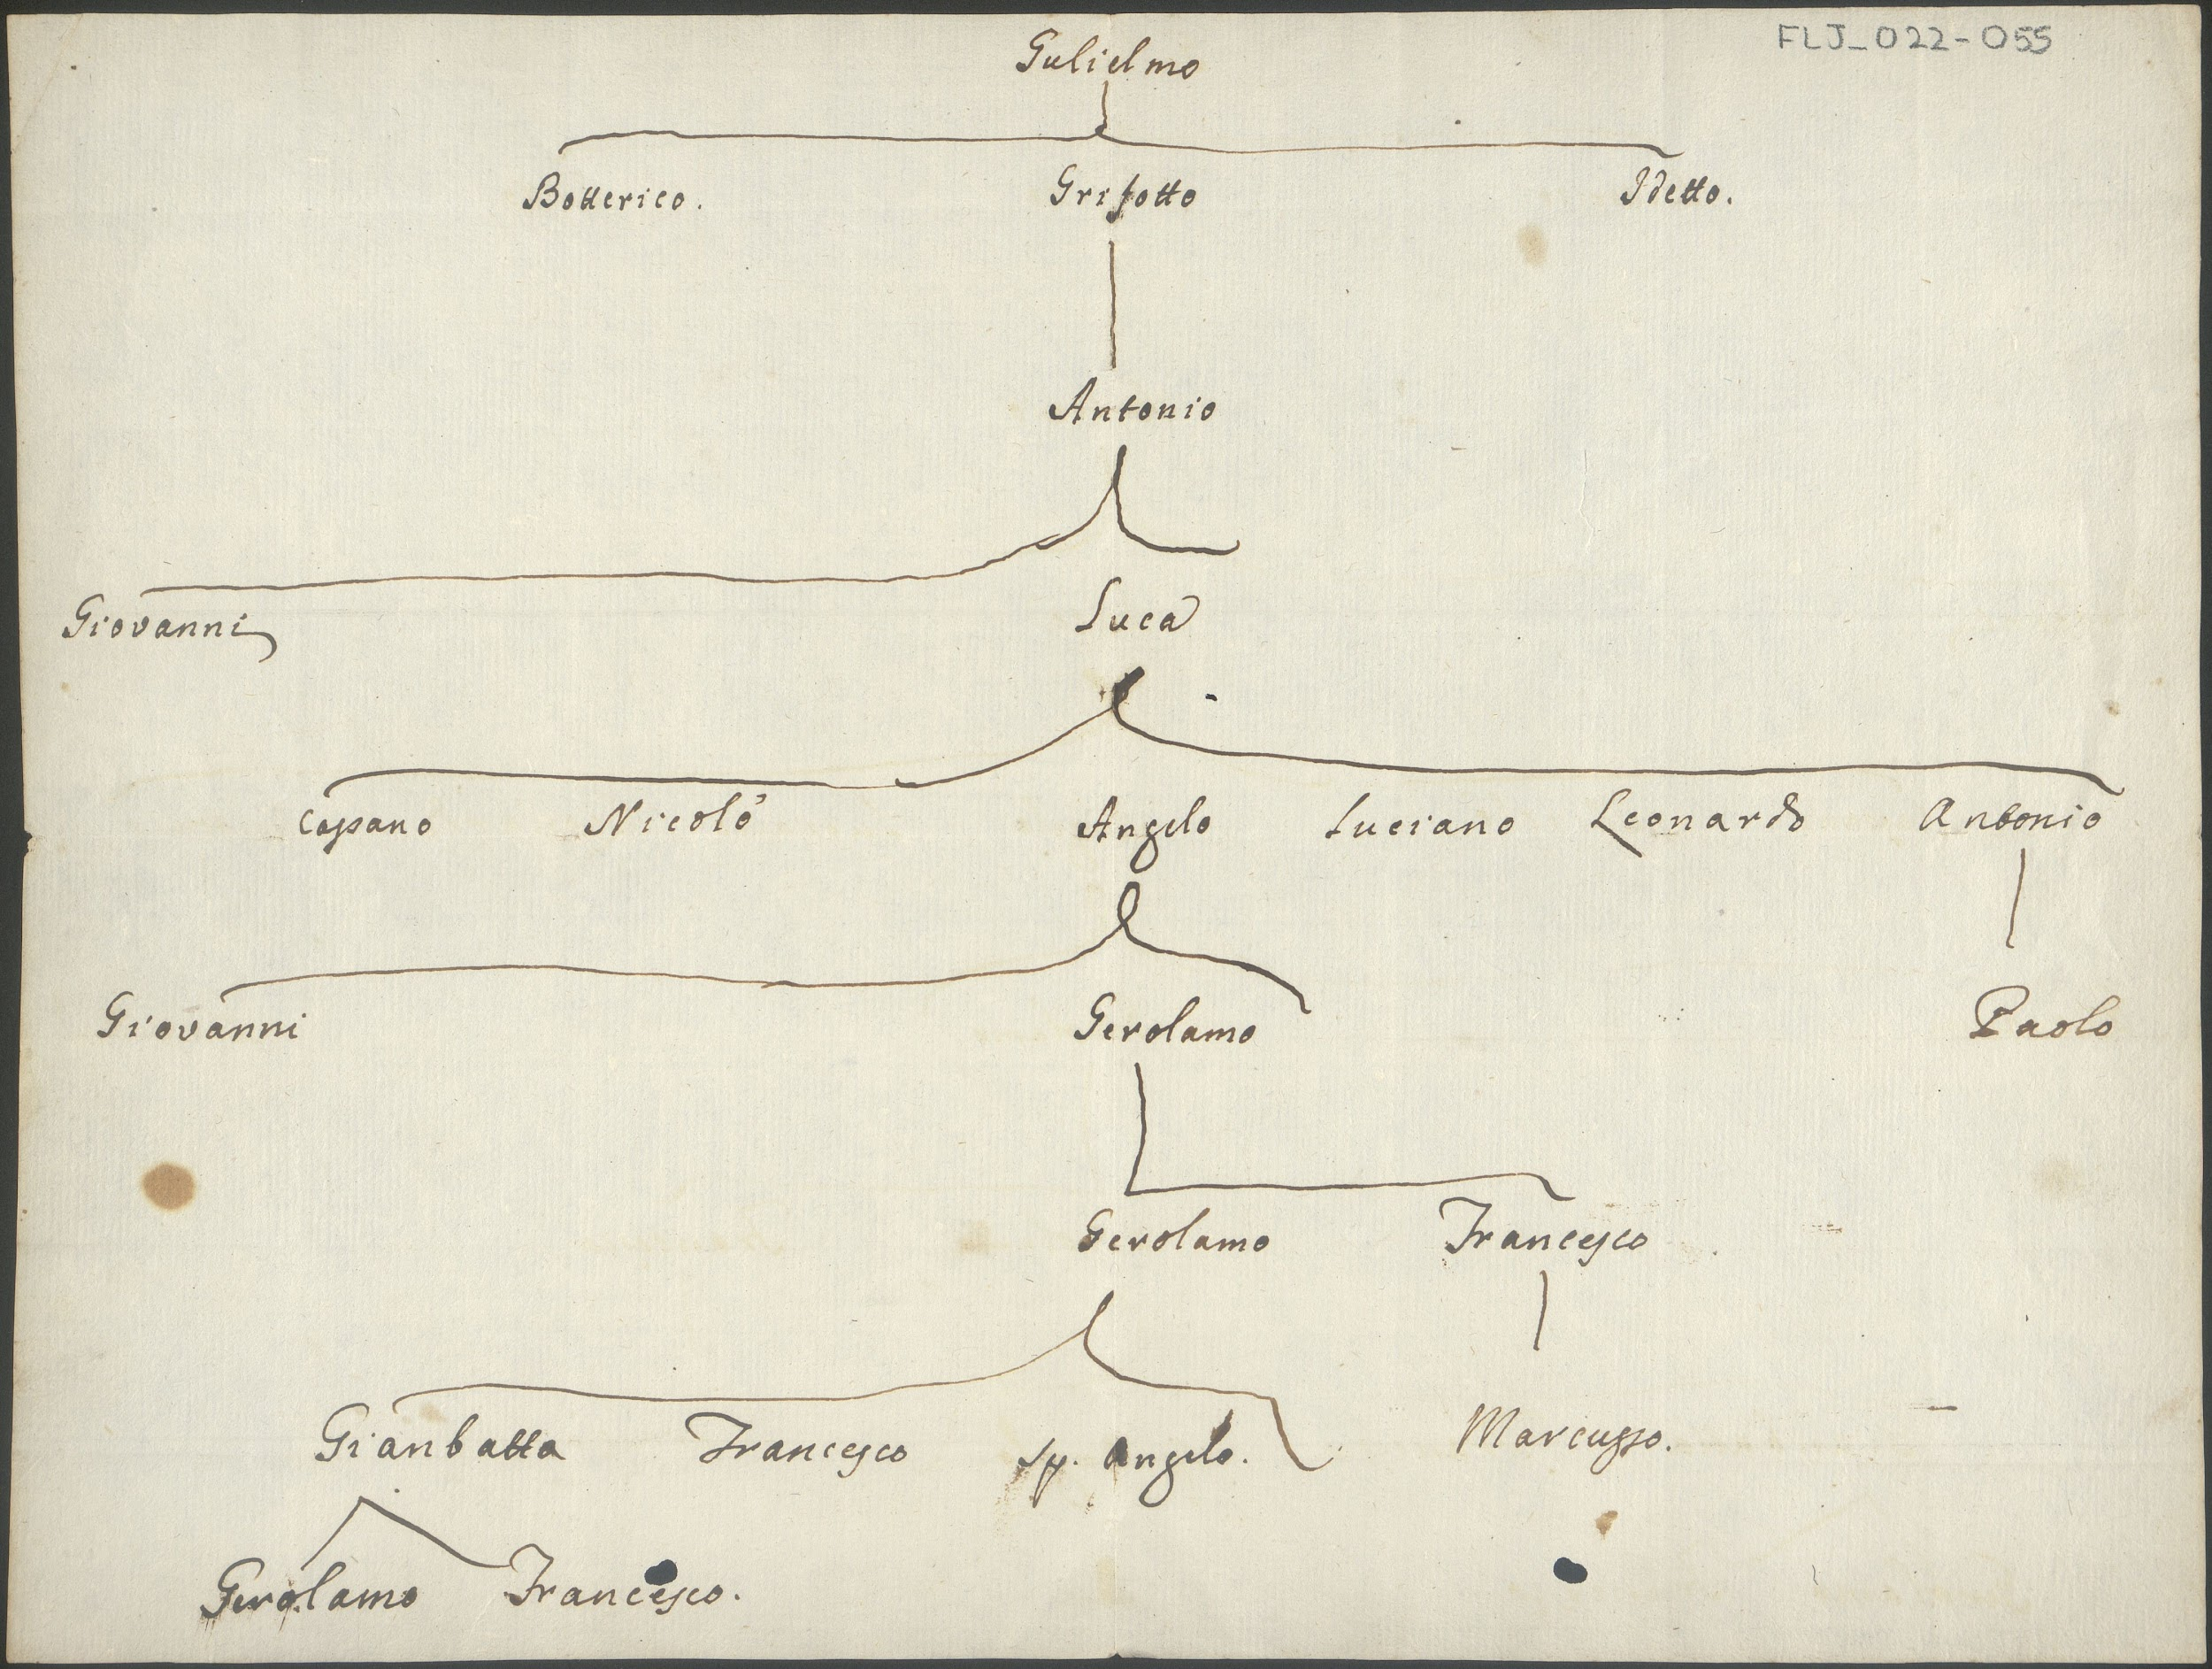 FLJ_022-055
Gulielmo
Botterico. Grifotto Idetto.
Antonio
Giovanni Luca
Nicolò Angelo Luciano Leonardo Antonio
Giovanni Gerolamo Paolo
Gerolamo Francesco
Gianbatta Francesco sp. Angelo. Marcusso.
Gerolamo Francesco.